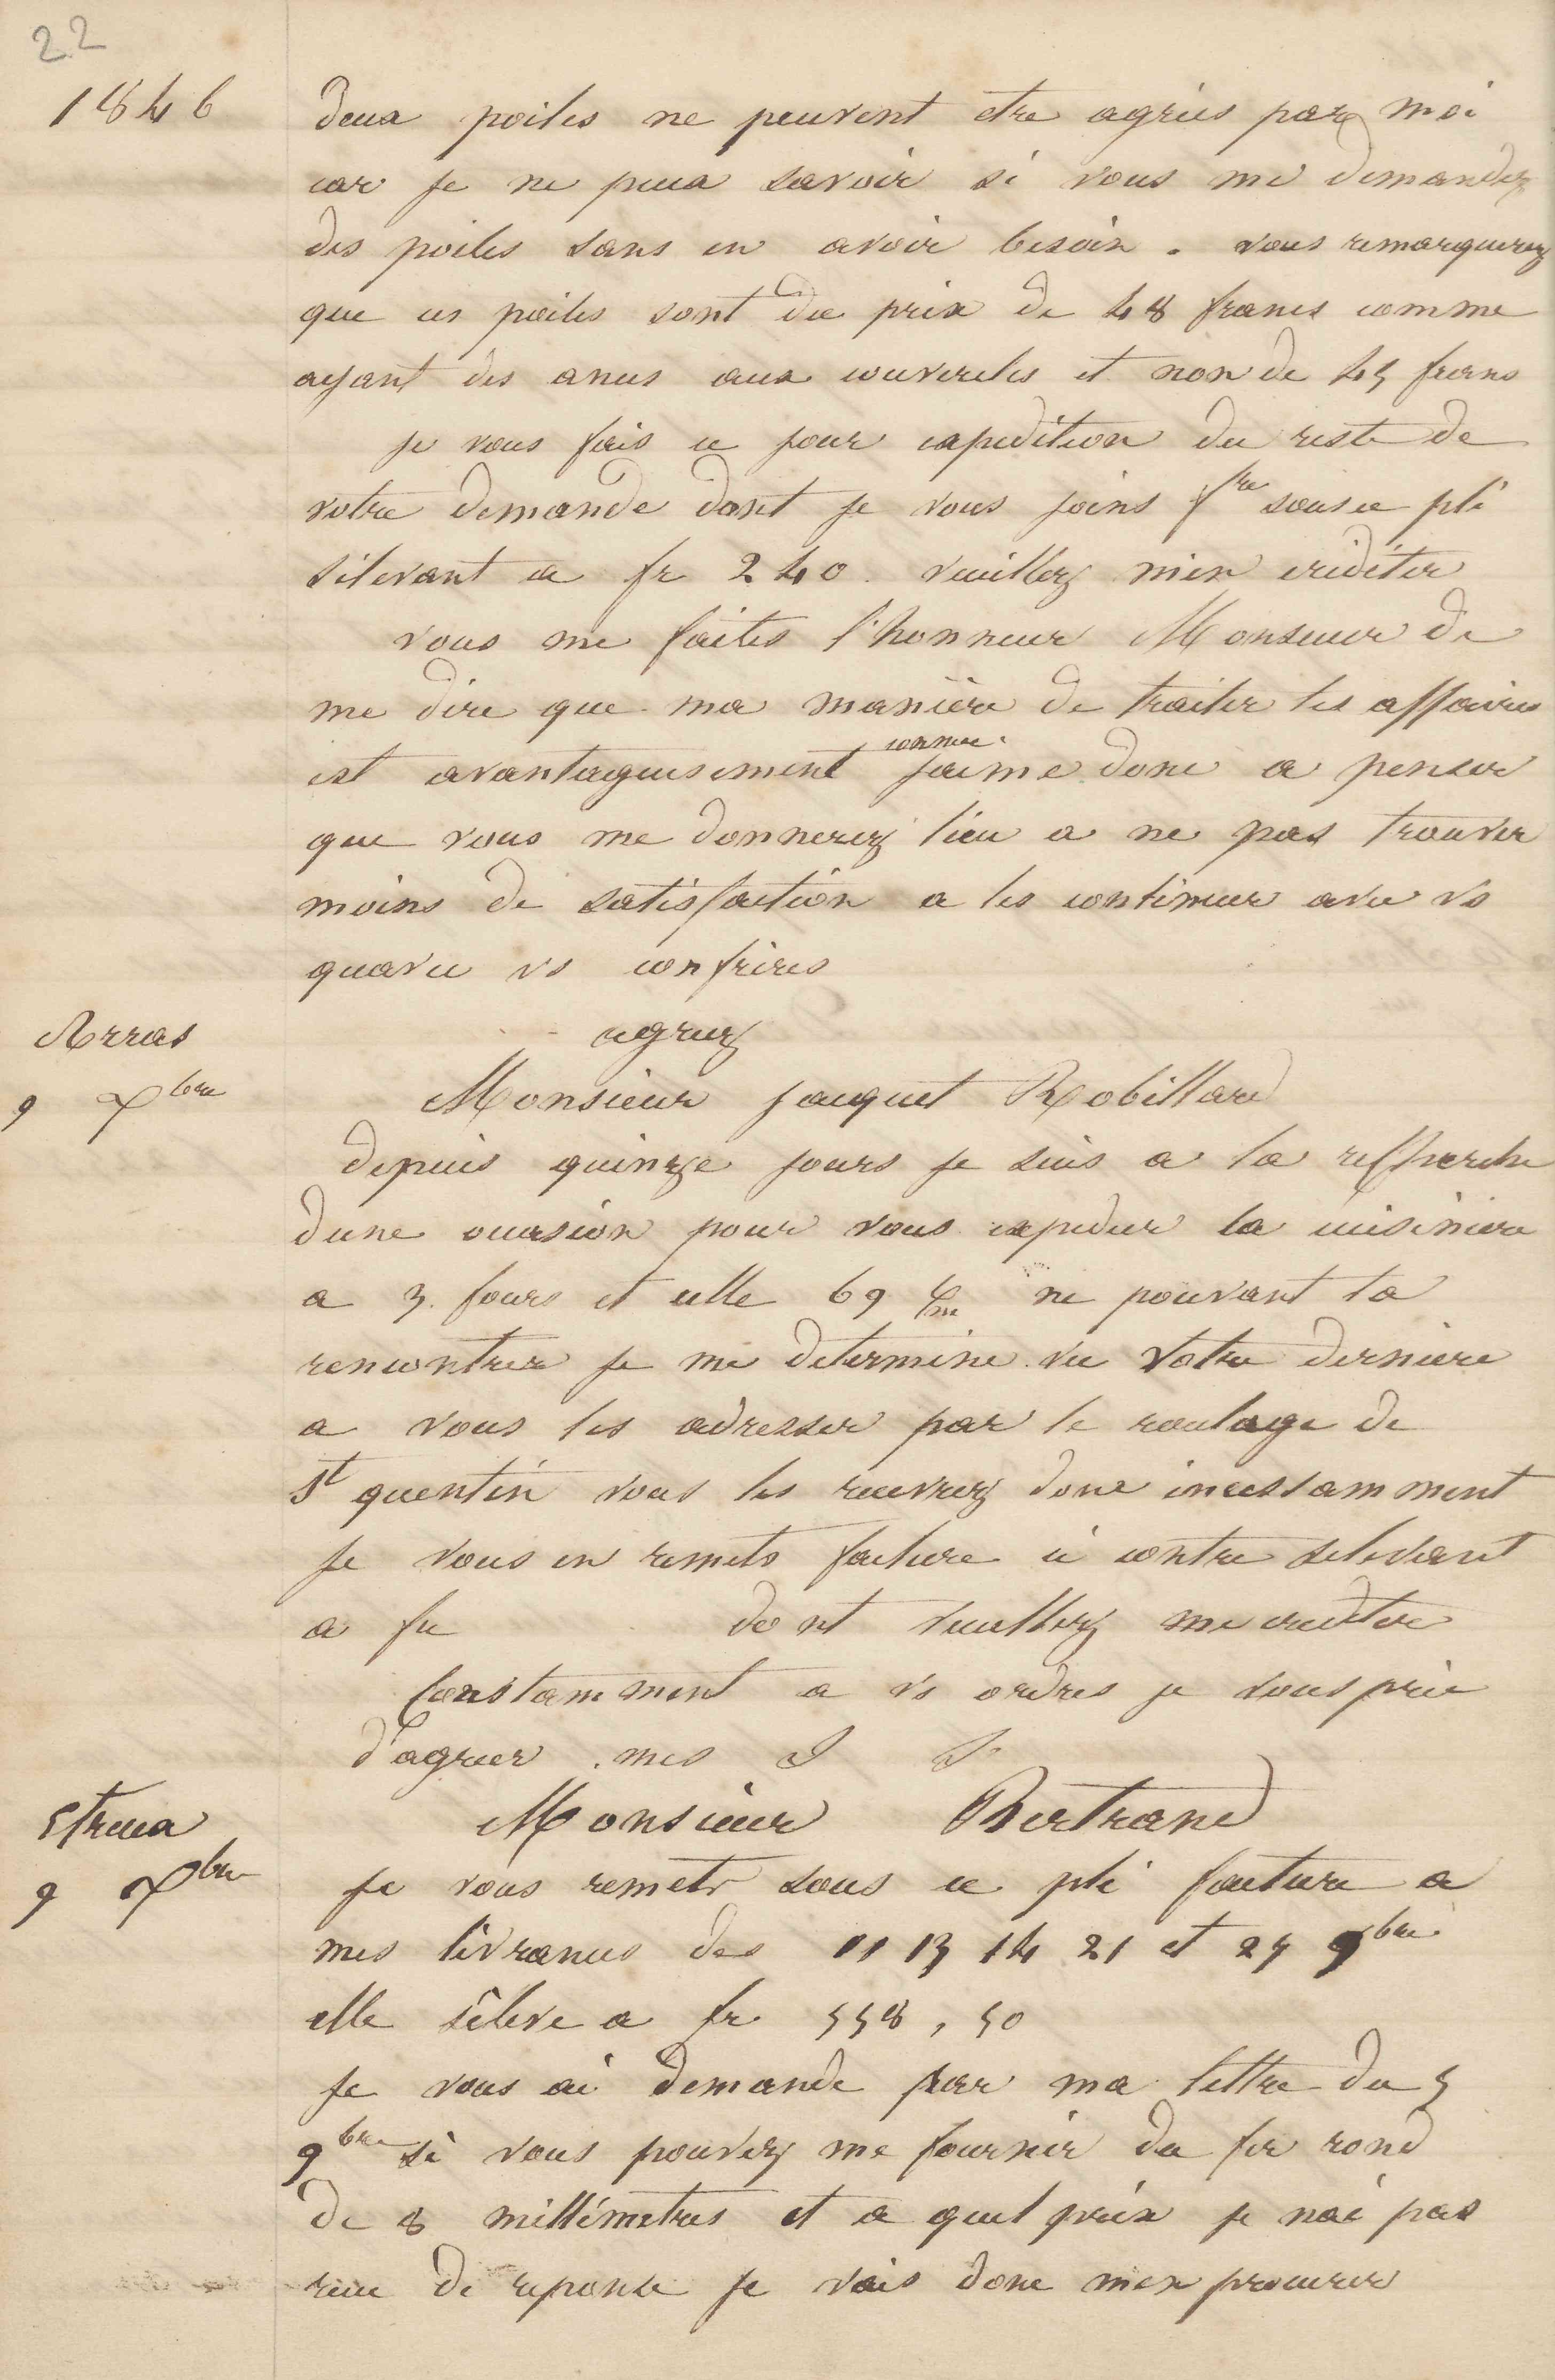 22
1846
deux poiles ne peuvent etre agriés par moi
car je ne peux savoir si vous me demandez
des poiles sans en avoir besoin. vous remarquerez
que ces poiles sont du prix de 48 francs comme
ayant des anus aux couvercles et non de 45 francs
je vous fais ce jour expedition du reste de
votre demande dont je vous joins fre sous ce pli
s'ilevant a fr 240. veuillez m'en crediter
vous me faites l'honneur Monsieur de
me dire que ma manière de traiter les affaires
connue
est avantageusement j'aime donc a penser
que vous me donnerez lieu a ne pas trouver
moins de satisfaction a les continuer avec vs
quavec vs confrères
agreez
Arras
9 Xbre
Monsieur jacquet Robillard
depuis quinze jours je suis a la
dune occasion pour vous expedier la cuisiniere
a 3 fours et celle 69 ne pouvant la
rencontrer je me determine vu votre derniere
a vous les adresser par le roulage de
St quentin vous les recevrez donc incessamment
je vous en remets facture ci contre selevant
a fr dont veuillez me crediter
Constamment a vs ordres je vous prie
d'agreer mes S S
Etreux
9 Xbre
Monsieur Bertrand
je vous remets sous ce pli facture a
mes livrances des 11 13 14 21 et 25 9bre
elle s'eleve a fr 558,50
je vous ai demande par ma lettre du 5
9bre si vous pouvez me fournir du fer rond
de 8 millimetres et a quel prix je nai pas
recu de reponse je vais donc men procurer